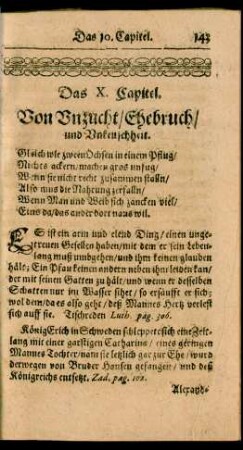 Das 10. Capitel. 143
Das X. Capitel.
Von Vnzucht/ Ehebruch/
und Vnkeuschheit.
Gleich wie zween Ochsen in einem Pflug/
Nichts ackern/ machen gros unfug/
Wenn sie nicht recht zusammen stalln/
Also mus die Nahrung zerfalln/
Wenn Man und Weib sich zancken viel/
Eins da/ das ander dort naus wil.
ES ist ein arm und elend Ding/ einen unge-
treuen Gesellen haben/ mit dem er sein leben-
lang muß umbgehen/ und ihm keinen glauben
häle; Ein Pfau keinen andern neben ihm leiden kan/
der mit seinen Gatten zu hält/ und wenn er desselben
Schatten nur im Wasser sihet/ so ersäufft er sich;
wol dem/ da es also geht/ daß Mannes Hertz verlest
sich auff sie. Tischreden Luth. pag. 306.
König Erich in Schweden schleppet sich eine Zeit-
lang mit einer garstigen Catharina/ eines geringen
Mannes Tochter/ nam sie letzlich gar zur Ehe/ wurd
derwegen von Bruder Hansen gefangen/ und deß
Königreichs entsetzt. Zad. pag. 102.
Alexand-